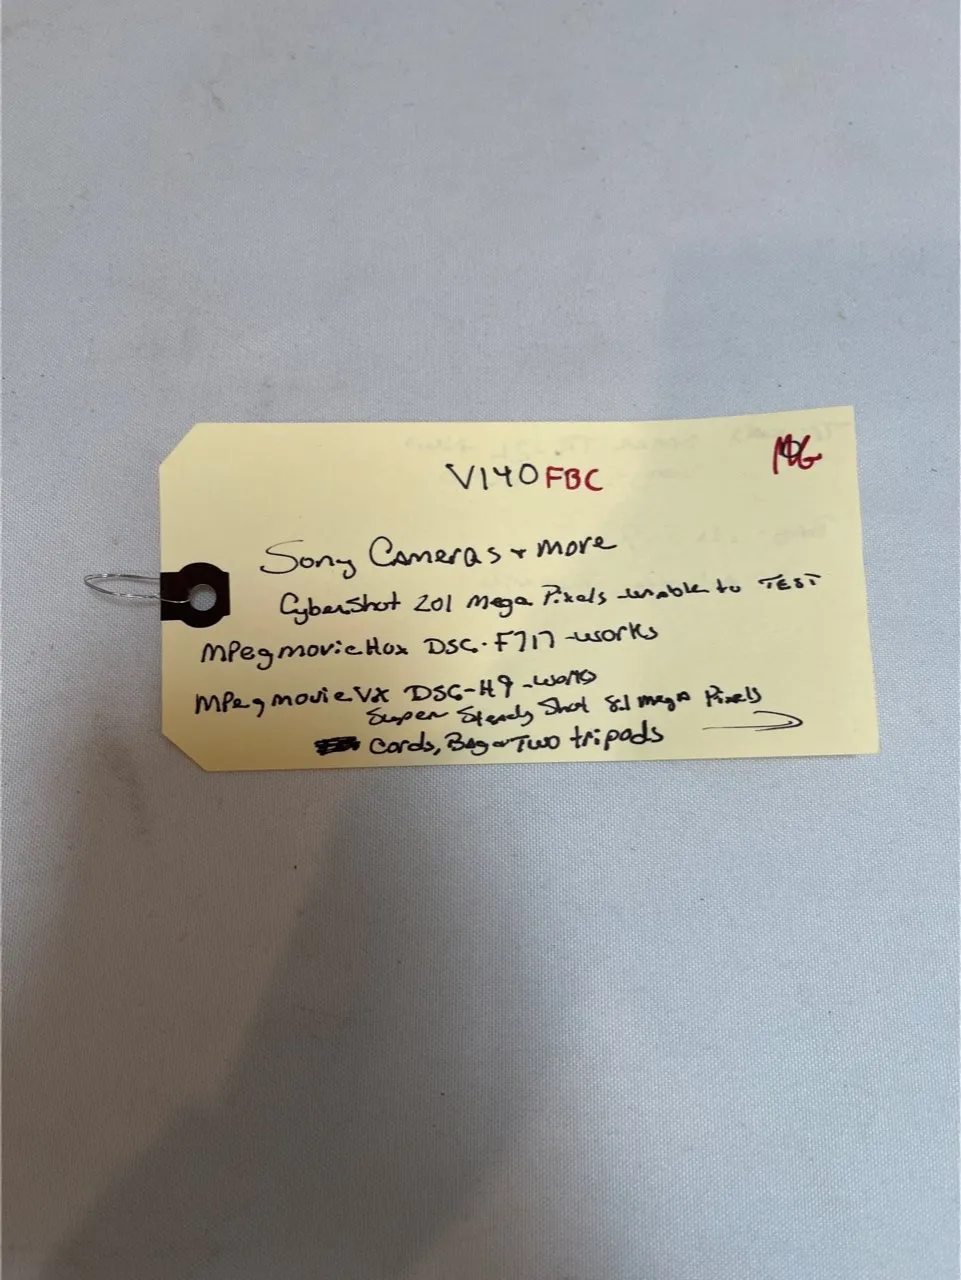 V140FBC
MG
Sony Cameras + more
CyberShot 201 Mega Pixels unable to TEST
MPegmovieHox DSC-F717-works
MPegmovieVX DSC-H9-works
Super Steady Shot 8.1 mega Pixels
Cords, Bag + Two tripods